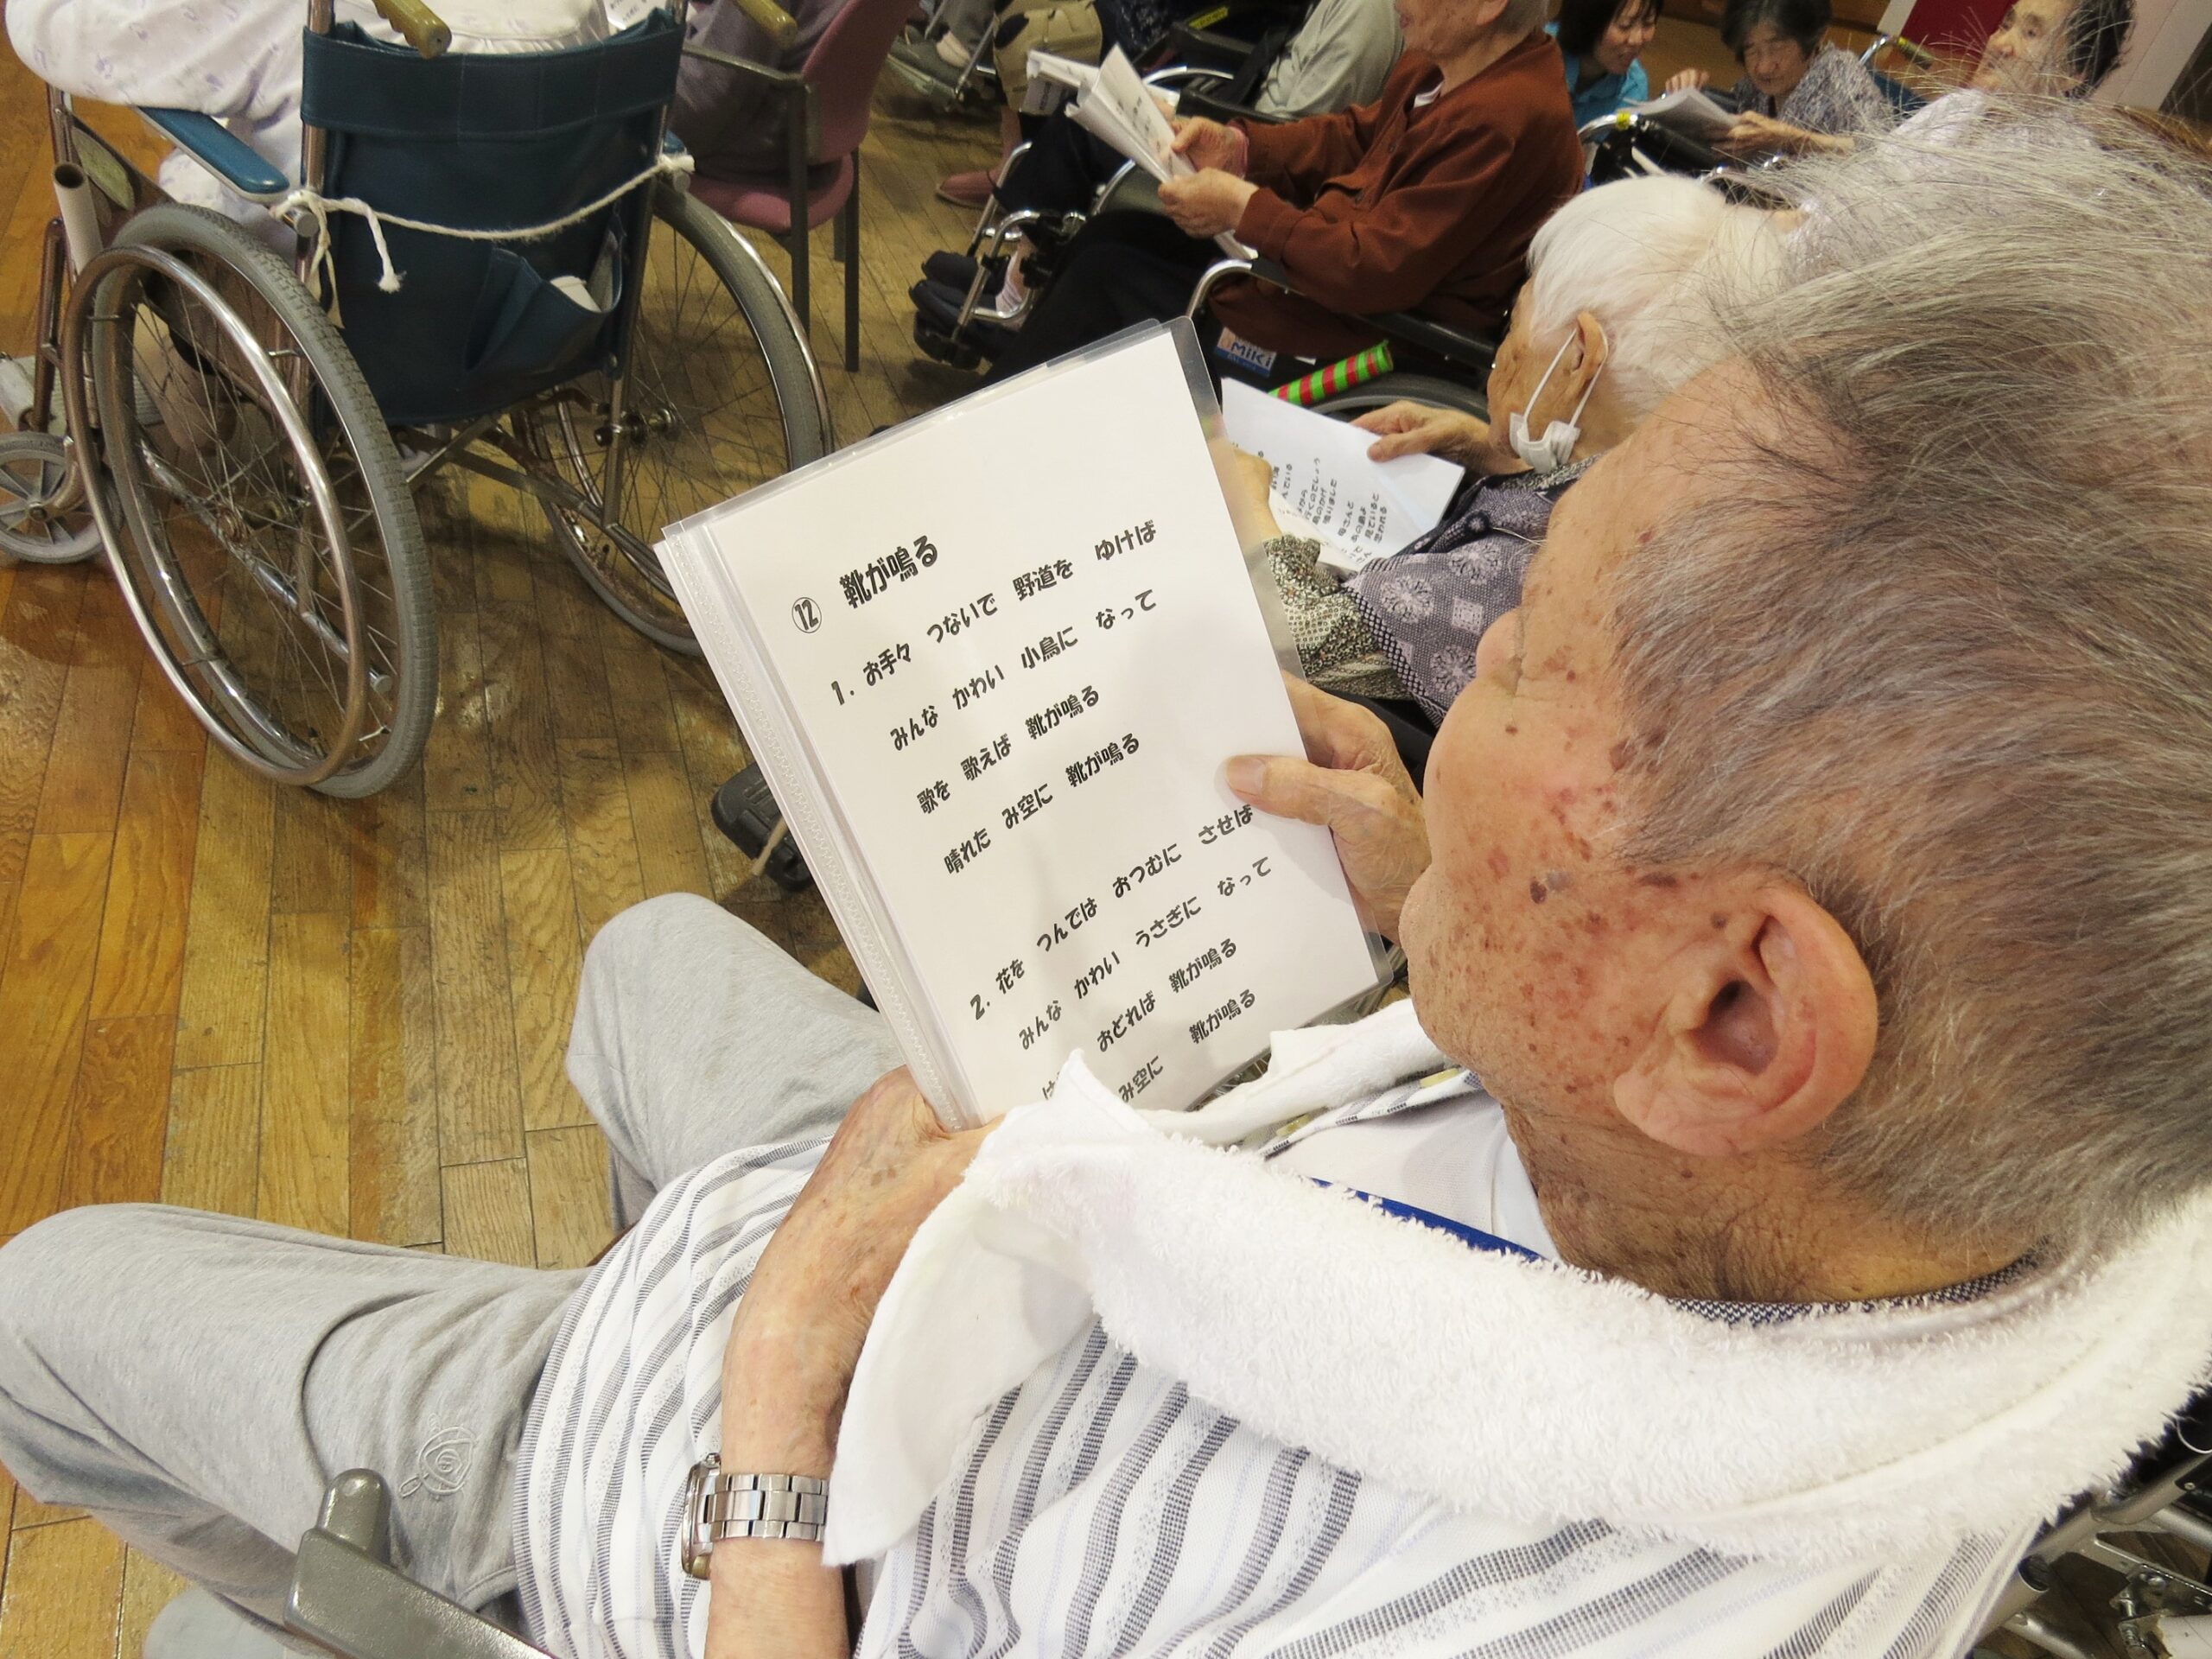 ⑫ 靴が鳴る
1. お手々 つないで 野道を ゆけば
みんな かわい 小鳥に なって
歌を 歌えば 靴が鳴る
晴れた み空に 靴が鳴る
2. 花を つんでは おつむに させば
みんな かわい うさぎに なって
おどれば 靴が鳴る
み空に 靴が鳴る
MiKi